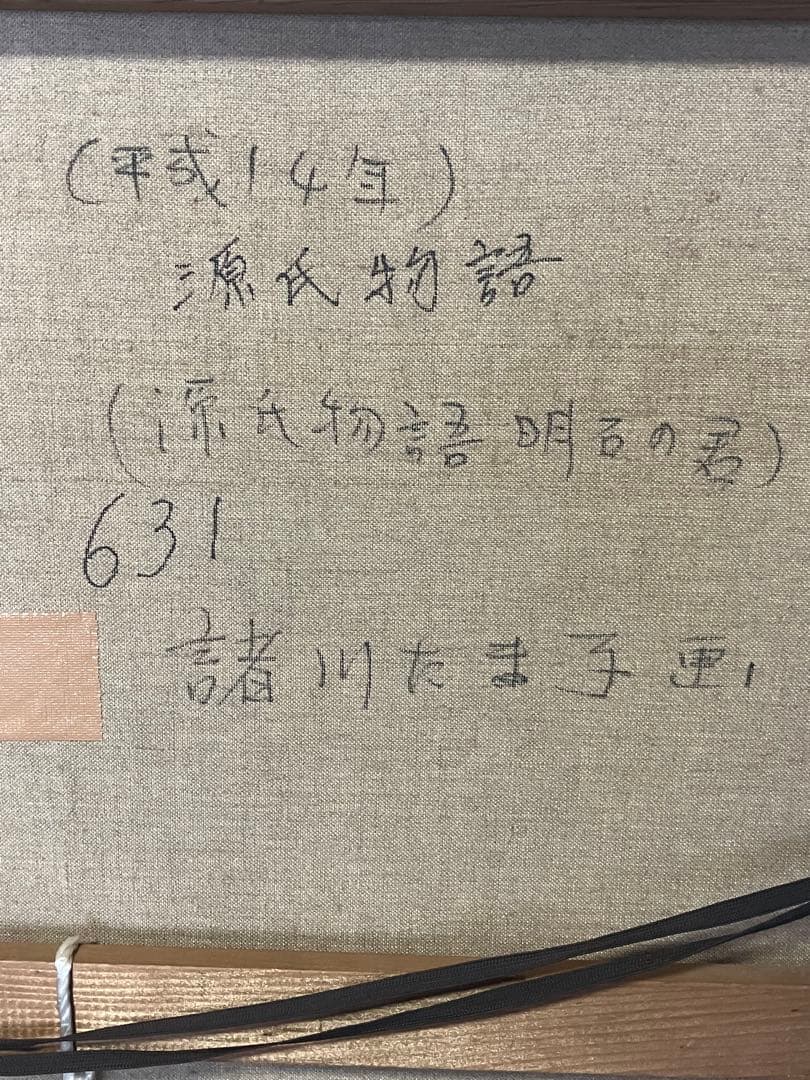 (平成14年)
源氏物語
(源氏物語 明石の君)
631
諸川たま子画